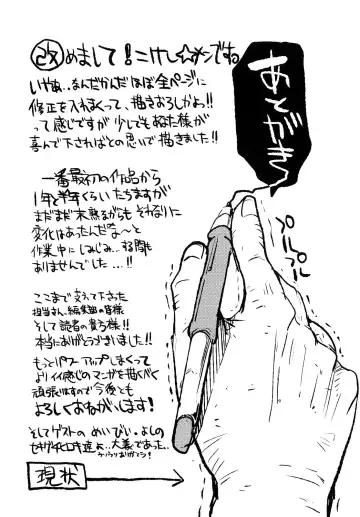 あとがき
改めまして!こけし☆メンですね
いやぁ…なんだかんだほぼ全ページに
修正を入れまくって、描きおろしかよ!!
って感じですが少しでもあなた様が
喜んで下さればとの思いで描きました!!
一番最初の作品から
1年と半年くらいたちますが
まだまだ未熟ながらも それなりに
変化はあったんだな〜と
作業中にしみじみ…する間も
ありませんでした…!!
ここまで支えて下さった
担当さん、編集部の皆様
そして読者の貴方様!!
本当にありがとうございました!!
もっとパワーアップしまくって
よりイイ感じのマンガを描くべく
頑張りますので今後とも
よろしくおねがいします!
そしてゲストの めいびい・よしの
大義であった…
現状
プルプル